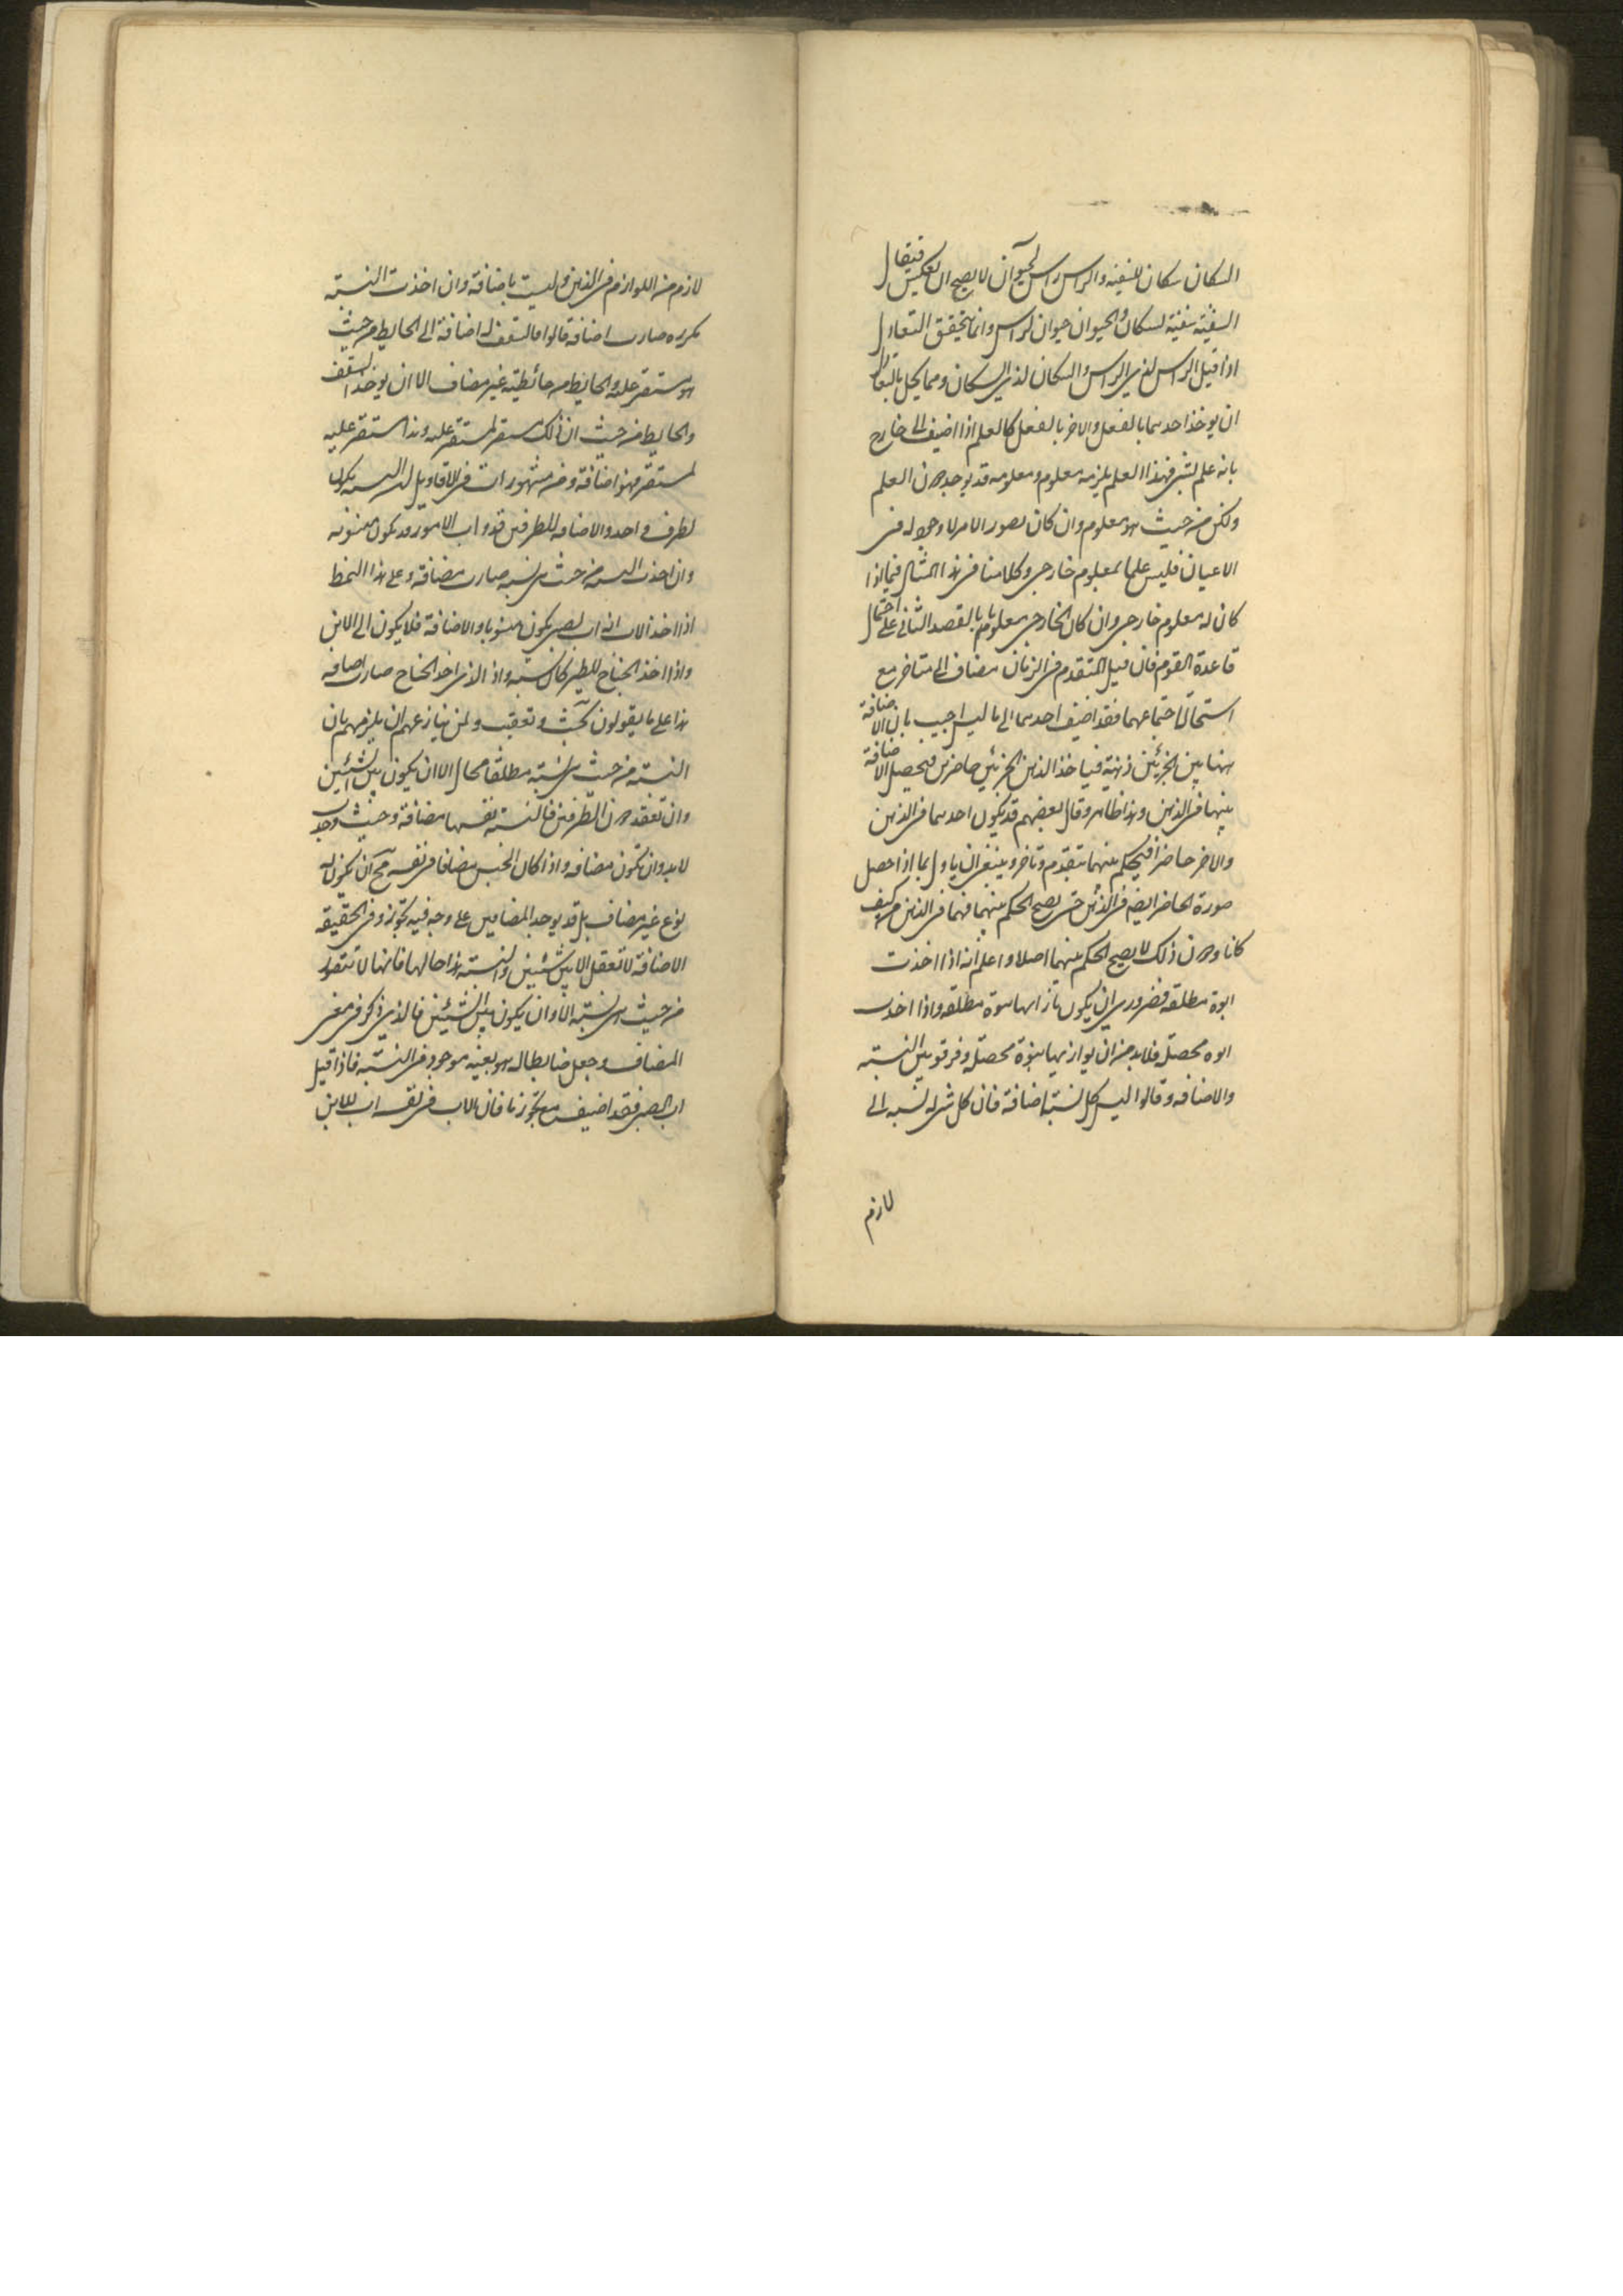 السكان سكان للسفينه والراس راس لحيوان لا يصح ان يعكس فيقال
السفينة سفينة لسكان والحيوان حيوان لراس وانما يتحقق التعادل
اذا قيل الراس لذي الراس والسكان لذي السكان ومما يخل بالتعادل
ان يوخذ احدهما بالفعل والاخر بالفعل كالعلم اذا اضيف الى خارج
بانه علم لشي فهذا العلم يلزمه معلوم ومعلومه قد يوجد دون العلم
ولكن من حيث هو معلوم وان كان يصور الامر لا وجود له في
الاعيان فليس علما بمعلوم خارجي وكلامنا في هذا المثال فيما اذا
كان له معلوم خارجي وان كان الخارجي معلوما بالقصد الثاني على احتمال
قاعدة القوم فان قيل المتقدم في الزمان مضاف الى متاخر مع
استحالة اجتماعهما فقد اضيف احدهما الى ما ليس اجيب بان الاضافة
ههنا بين الجزئين ذهنية فياخذ الذهن الجزئين حاضرين فيحصل الاضافة
بينهما في الذهن وهذا ظاهر وقال بعضهم قد يكون احدهما في الذهن
والاخر حاضرا فيحكم بينهما بتقدم وتاخر وينبغي ان ياول بما اذا حصل
صورة الحاضر ايضا في الذهن حتى يصح الحكم بينهما فهما في الذهن كيف
كانا ودون ذلك لا يصح الحكم بينهما اصلا واعلم انه اذا اخذت
ابوة مطلقة فضروري ان يكون بازائها بنوة مطلقه واذا اخذت
ابوه محصلة فلابد من ان يوازيها بنوة محصلة وفرقوا بين النسبة
والاضافه وقالوا ليس كل نسبة اضافة فان كل شي له نسبه الى
لازم
لازم من اللوازم في الذهن وليست باضافة وان اخذت النسبة
مكرره صارت اضافة قالوا فالسقف له اضافة الى الحايط من حيث
هو مستقر عليه والحايط من حائطيته غير مضاف الا ان يوخذ السقف
والحايط من حيث ان ذلك مستقر لمستقر عليه وهذا مستقر عليه
لمستقر فهو اضافة ومن مشهورات في الاقاويل ان النسبه يكون
لطرف واحد والاضافه للطرفين فذوات الامور قد يكون منسوبه
وان اخذت النسبه من حيث هي نسبه صارت مضافة وعلى هذا النمط
اذا اخذ الاب انه اب لصبي يكون منسوبا والاضافة فلا يكون الى الابن
واذا اخذ الجناح للطير كان نسبه واذ الذي اخذ الجناح صارت اضافه
هذا على ما يقولون بحث وتعقب ولمن ينازعهم ان يلزمهم بان
النسبة من حيث هي نسبة مطلقا محال الا ان يكون بين الشيئين
وان تعقد دون الطرفين فالنسبة نفسها مضافة وحيث وجدت
لابد وان تكون مضافه واذا كان الجنس مضافا في نفسه مح ان يكون له
نوع غير مضاف بل قد يوجد المضافين على وجه فيه تجوز وفي الحقيقه
الاضافة لا تعقل الا بين شيئين والنسبة هذا حالها فانها لا تتقرر
من حيث هي نسبة الا وان يكون بين الشيئين فالذي ذكر في معنى
المضاف وجعل ضابطا له هو بعينه موجود في النسبة فاذا قيل
اب الصبي فقد اضيف مع تجوز ما فان الاب في نفسه اب للابن